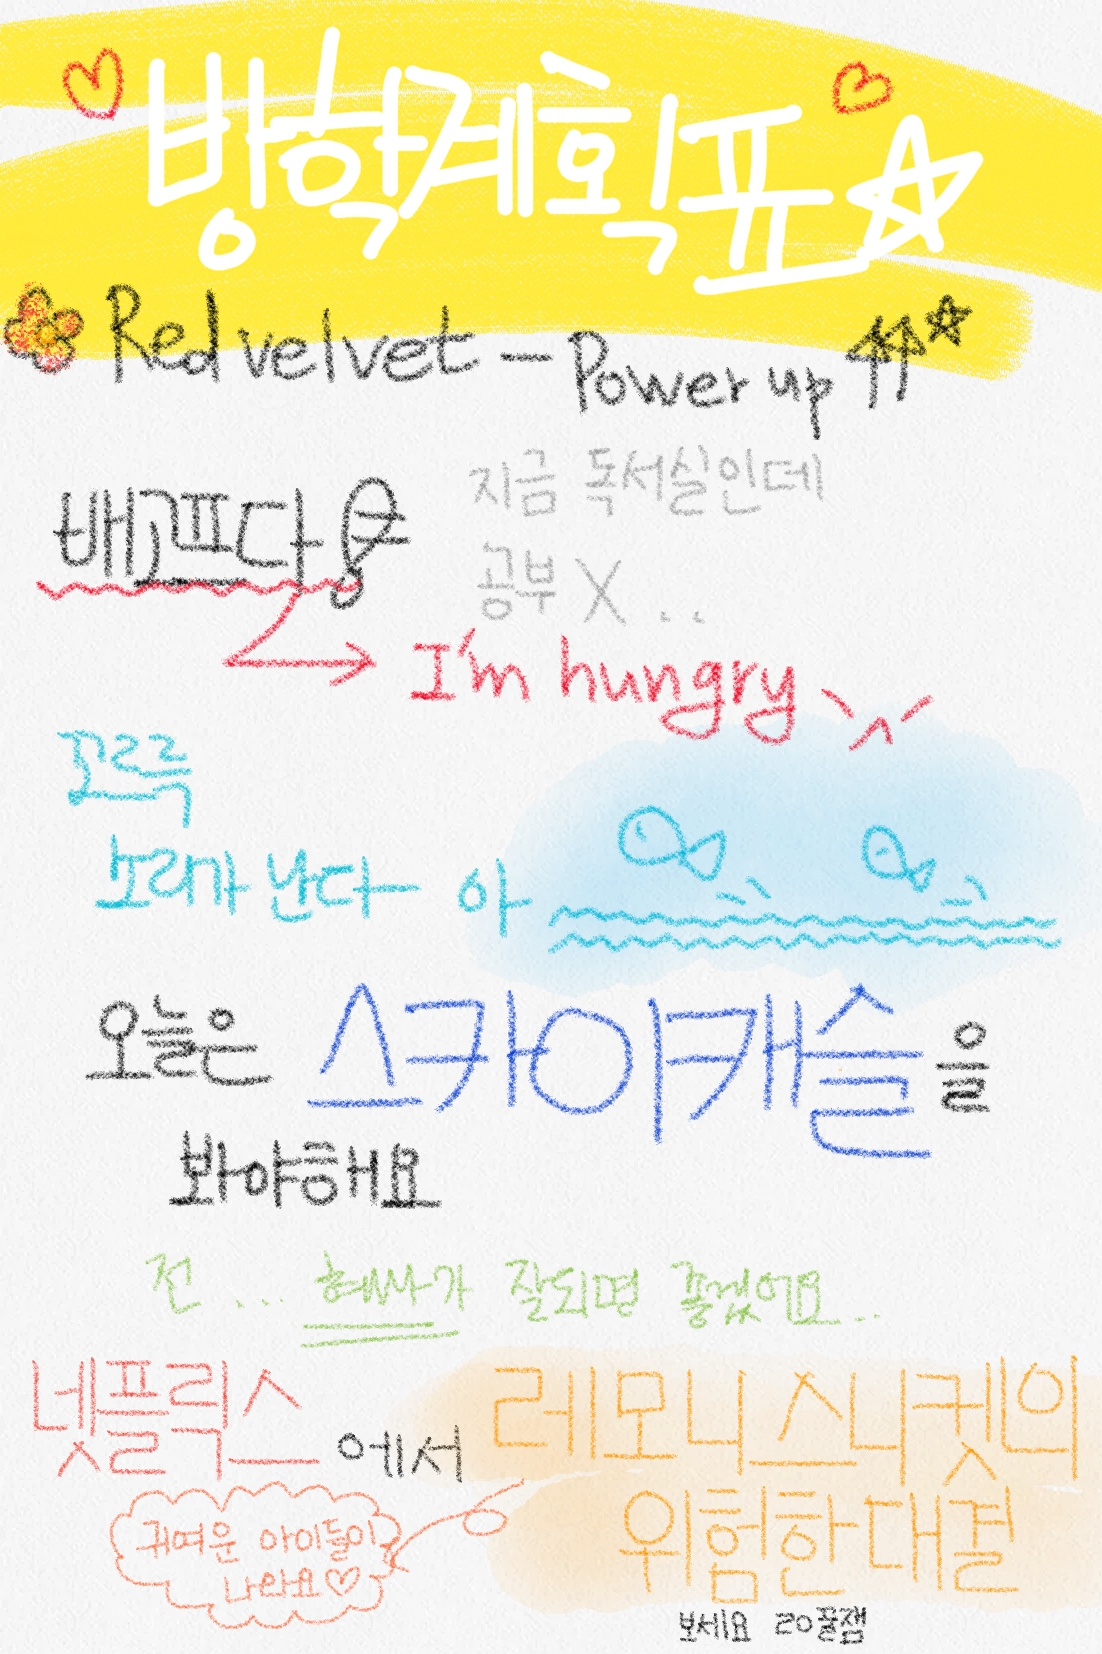 방학계획표
Red velvet - Power up
배고프다
지금 독서실인데
공부 X ..
I'm hungry
꼬르륵
소리가 난다 아
오늘은 스카이캐슬을
봐야해요
전 ... 혜나가 잘되면 좋겠어요...
넷플릭스에서 레모니스니켓의
위험한대결
귀여운 아이들이
나와요
보세요 꿀잼